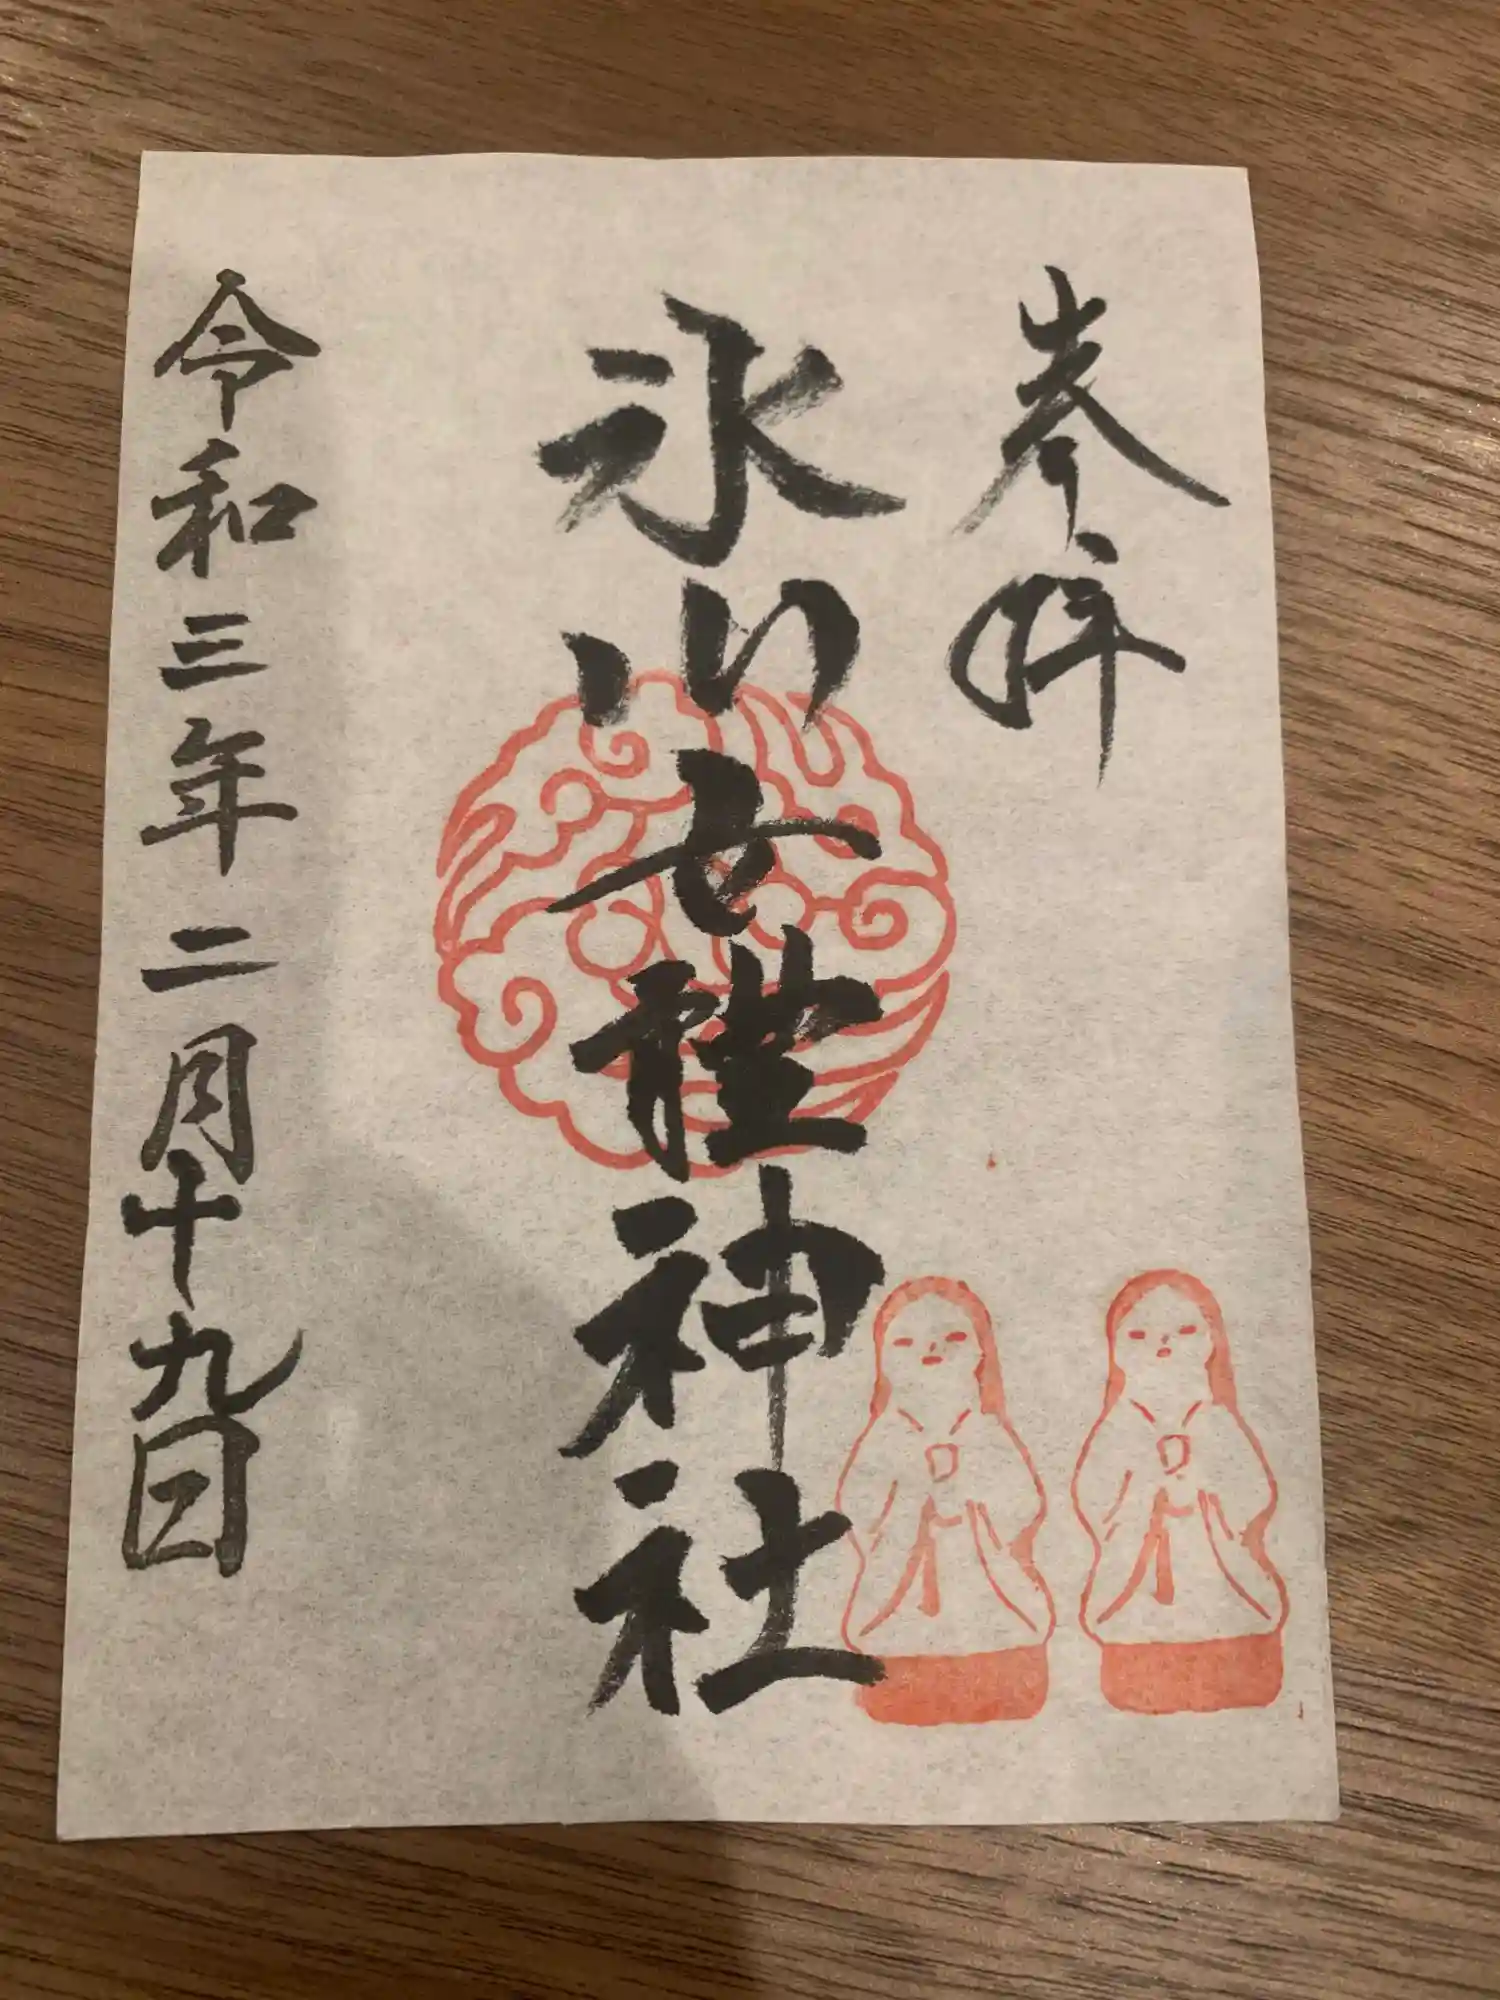 参拝
氷川女體神社
令和三年二月十九日